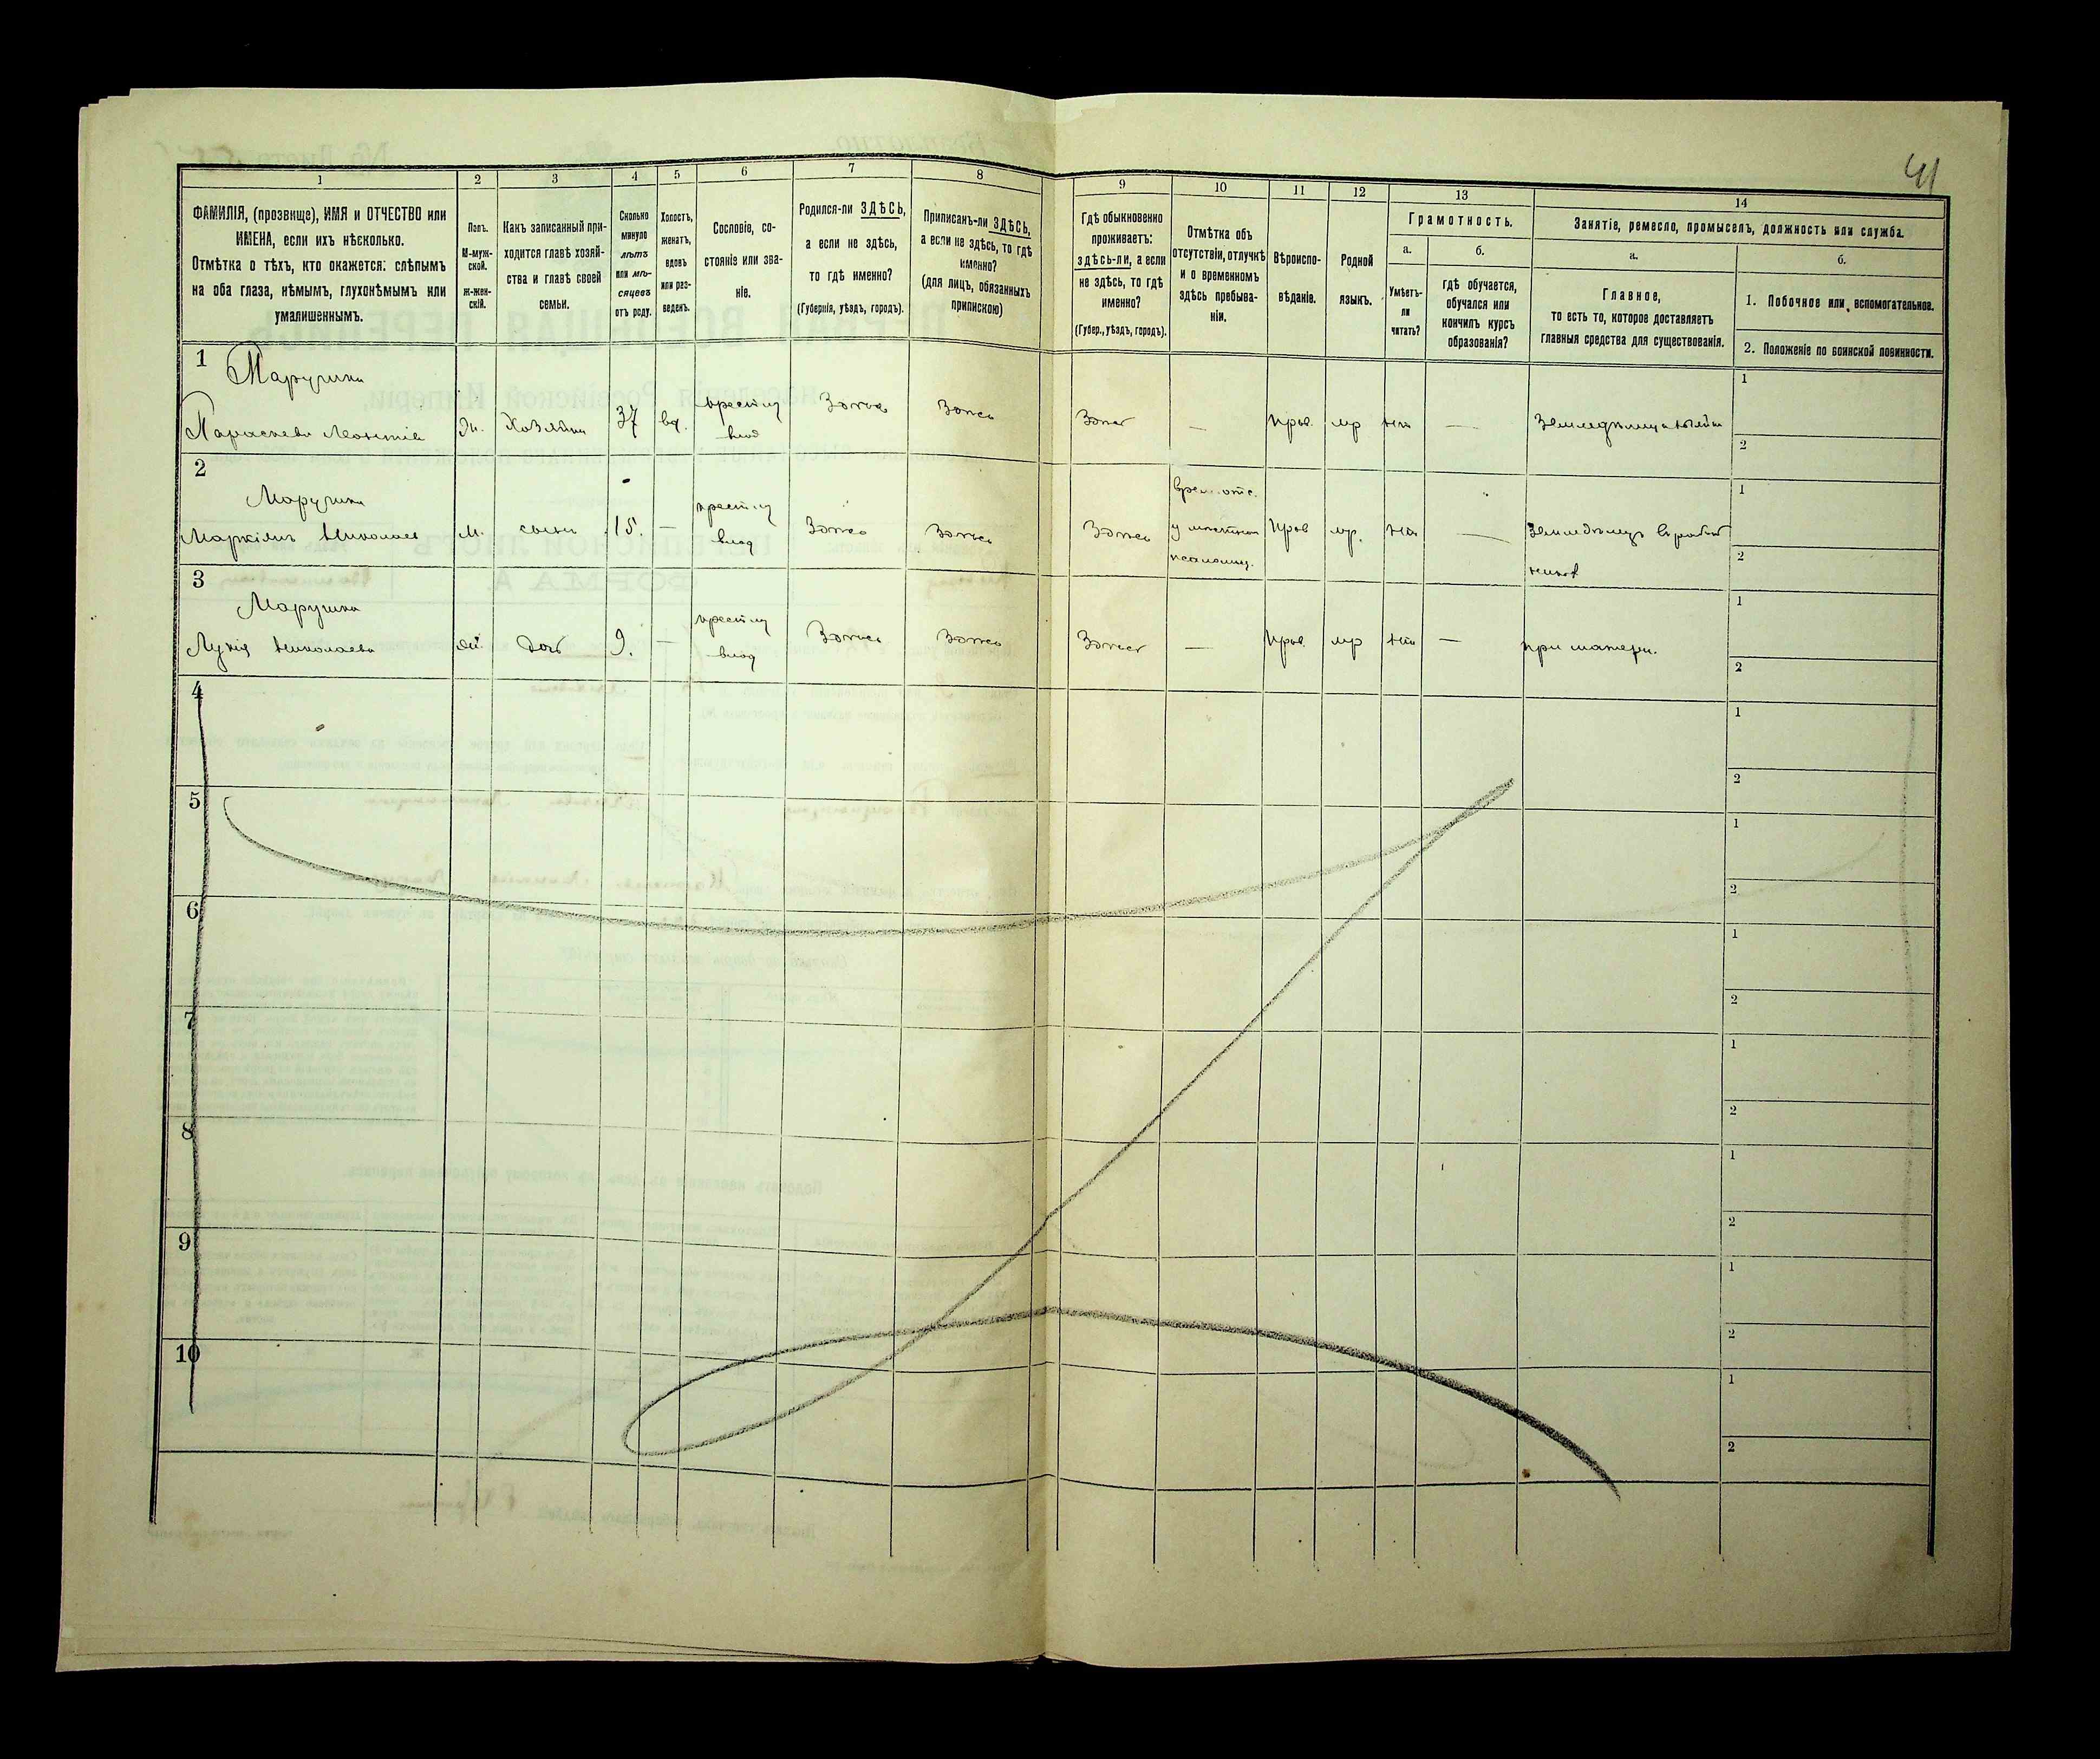 41
1 2 3 4 5 6 7 8 9 10 11 12 13 14
ФАМИЛІЯ, (прозвище), ИМЯ и ОТЧЕСТВО или
ИМЕНА, если ихъ нѣсколько.
Отмѣтка о тѣхъ, кто окажется: слѣпымъ
на оба глаза, нѣмымъ, глухонѣмымъ или
умалишеннымъ.
Полъ.
М-муж-
ской.
Ж-жен-
скій.
Какъ записанный при-
ходится главѣ хозяй-
ства и главѣ своей
семьи.
Сколько
минуло
лѣтъ
или мѣ-
сяцевъ
отъ роду.
Холостъ,
женатъ,
вдовъ
или раз-
веденъ.
Сословіе, со-
стояніе или зва-
ніе.
Родился-ли ЗДѢСЬ,
а если не здѣсь,
то гдѣ именно?
(Губернія, уѣздъ, городъ).
Приписанъ-ли ЗДѢСЬ,
а если не здѣсь, то гдѣ
именно?
(для лицъ, обязанныхъ
припискою)
Гдѣ обыкновенно
проживаетъ:
здѣсь-ли, а если
не здѣсь, то гдѣ
именно?
(Губер., уѣздъ, городъ).
Отмѣтка объ
отсутствіи, отлучкѣ
и о временномъ
здѣсь пребыва-
ніи.
Вѣроиспо-
вѣданіе.
Родной
языкъ.
Грамотность.
а.
Умѣетъ-
ли
читать?
б.
гдѣ обучается,
обучался или
кончилъ курсъ
образованія?
Занятіе, ремесло, промыселъ, должность или служба.
а.
Главное,
то есть то, которое доставляетъ
главныя средства для существованія.
б.
1. Побочное или вспомогательное.
2. Положеніе по воинской повинности.
1 Марушка
Параскева Леонтіева
37 вд.
Здѣсь Здѣсь Здѣсь — прав. мр нѣтъ —
1
2
2 Марушка
Николаев м. сынъ 15. —
Здѣсь Здѣсь Здѣсь
прав мр. нѣтъ —
1
2
3 Марушка
Лукія Николаева 9. —
Здѣсь Здѣсь Здѣсь — прав. мр нѣтъ — при матери.
1
2
4
1
2
5
1
2
6
1
2
7
1
2
8
1
2
9
1
2
10
1
2